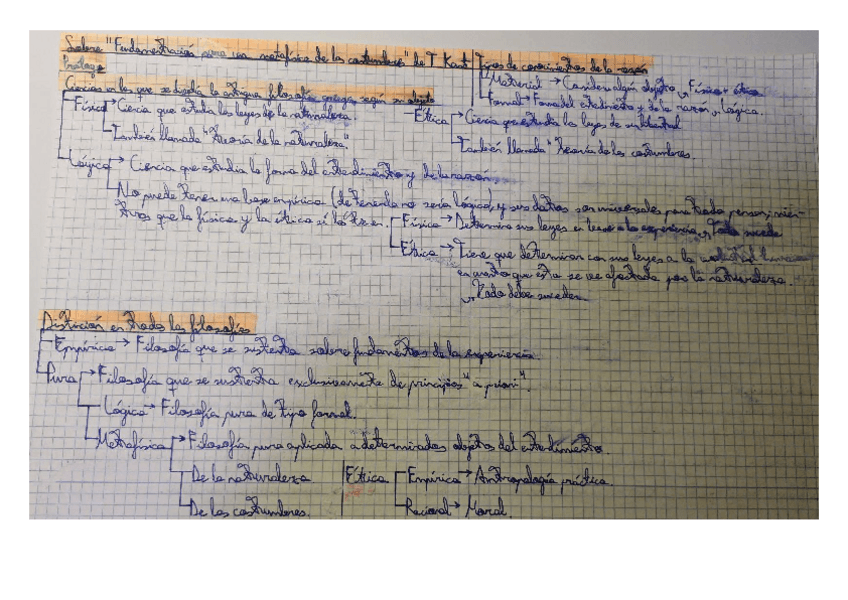 Sobre "Fundamentación para una metafísica de las costumbres" de I. Kant
Prólogo
Ciencias en las que se dividía la antigua filosofía griega según su objeto
Física → Ciencia que estudia las leyes de la naturaleza.
También llamada "Teoría de la naturaleza."
Tipos de conocimientos de la razón
Material → Considera algún objeto → Física + ética
Formal → Forma del entendimiento y de la razón → Lógica.
Ética → Ciencia que estudia las leyes de su libertad
También llamada "Teoría de las costumbres.
Lógica → Ciencia que estudia la forma del entendimiento y de la razón.
No puede tener una base empírica (de tenerla no sería lógica) y sus datos son universales para toda persona, mien-
tras que la física y la ética sí la tienen.
Física → Determina sus leyes en base a la experiencia → Todo sucede
Ética → Tiene que determinar con sus leyes a la voluntad humana
en cuanto que ésta se ve afectada por la naturaleza.
→ Todo debe suceder
Distinción en todas las filosofías
Empírica → Filosofía que se sustenta sobre fundamentos de la experiencia.
Pura → Filosofía que se sustenta exclusivamente de principios "a priori".
Lógica → Filosofía pura de tipo formal.
Metafísica → Filosofía pura aplicada a determinados objetos del entendimiento.
De la naturaleza
De las costumbres.
Ética
Empírica → Antropología práctica.
Racional → Moral.